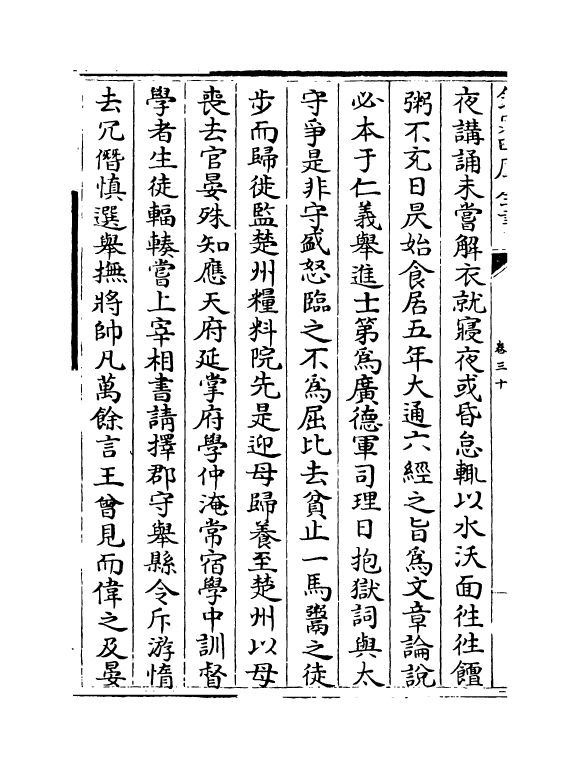 欽定四庫全書
卷三十
夜講誦未嘗解衣就寢夜或昏怠輒以水沃面徃徃饘
粥不充日昃始食居五年大通六經之旨爲文章論說
必本于仁義舉進士第爲廣德軍司理日抱獄詞與太
守爭是非守盛怒臨之不爲屈比去貧止一馬鬻之徒
步而歸徙監楚州糧料院先是迎母歸養至楚州以母
喪去官晏殊知應天府延掌府學仲淹常宿學中訓督
學者生徒輻輳嘗上宰相書請擇郡守舉縣令斥游惰
去冗僭慎選舉撫將帥凡萬餘言王曾見而偉之及晏